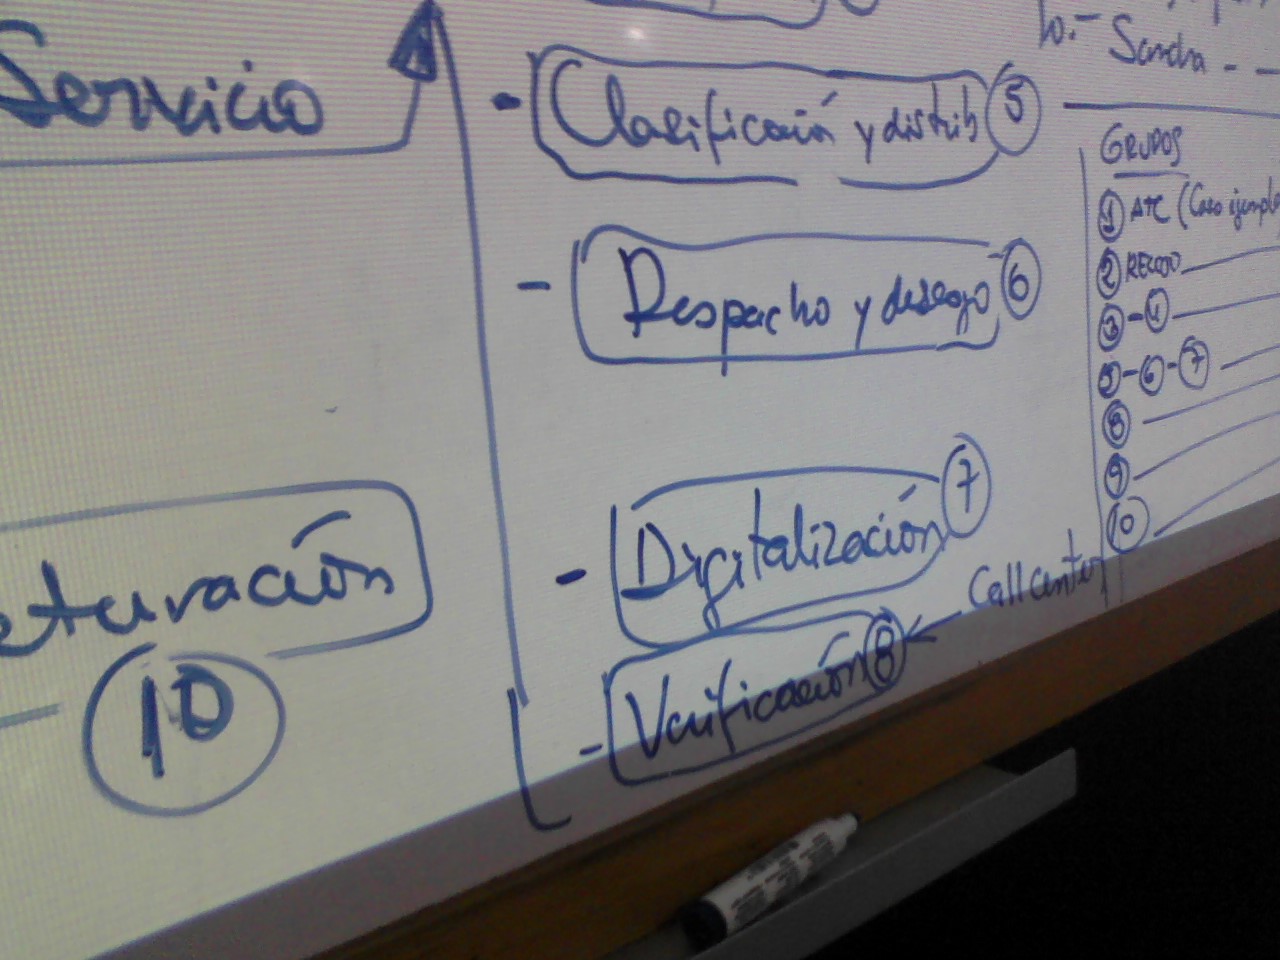 Servicio
- Clasificación y distrib 5
- Despacho y descargo 6
- Digitalización 7
- Verificación 8 ← Call center
cturación
10
10.- Sandra - -
GRUPOS
1 ATC (Caso ejemplo
2 RECOJO
3 - 4
5 - 6 - 7
8
9
10